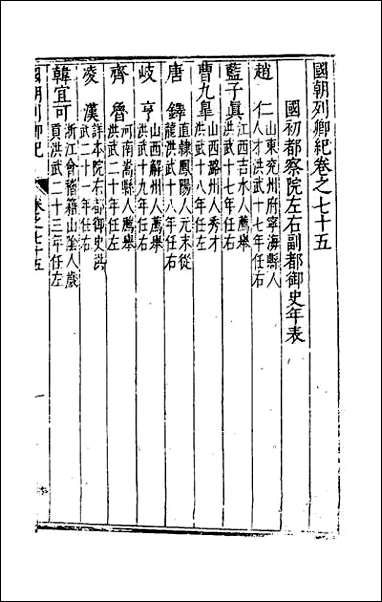 國朝列卿紀卷之七十五
國初都察院左右副都御史年表
趙仁 山東兗州府寧海縣人
人才洪武十七年任右
藍子真 江西吉水人薦舉
洪武十七年任右
曹九皐 山西潞州人秀才
洪武十八年任左
唐鐸 直隸鳳陽人元末從
龍洪武十八年任右
岐亨 山西解州人薦舉
洪武十九年任右
齊魯 河南嵩縣人薦舉
洪武二十年任左
凌漢 詳本院右都御史洪
武二十一年任左
韓宜可 浙江會稽籍山陰人歲
貢洪武二十三年任左
國朝列卿紀 卷之七十五
一